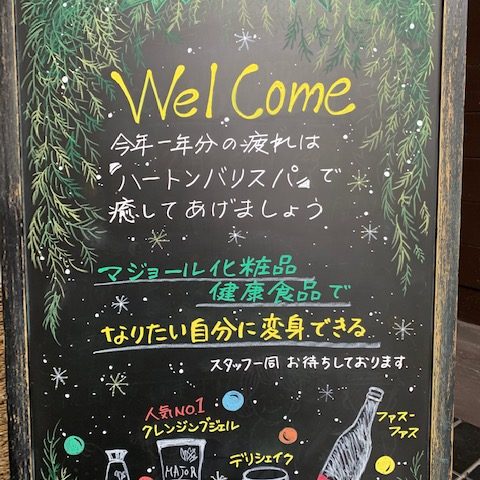 Wel Come
今年一年分の疲れは
『ハートンバリスパ』で
癒してあげましょう
マジョール化粧品
健康食品で
なりたい自分に変身できる
スタッフ一同 お待ちしております
人気NO.1
クレンジングジェル
デリシェイク
ファスー
ファス
MAJOR